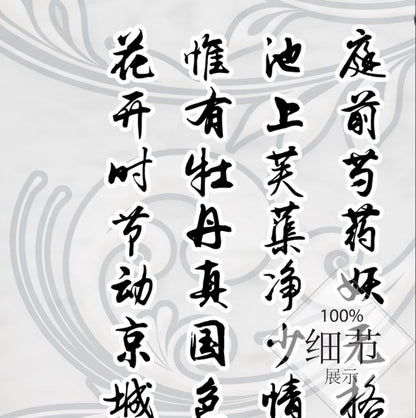 庭前芍药妖无格
池上芙蕖净少情
惟有牡丹真国色
花开时节动京城
100%
细节
展示